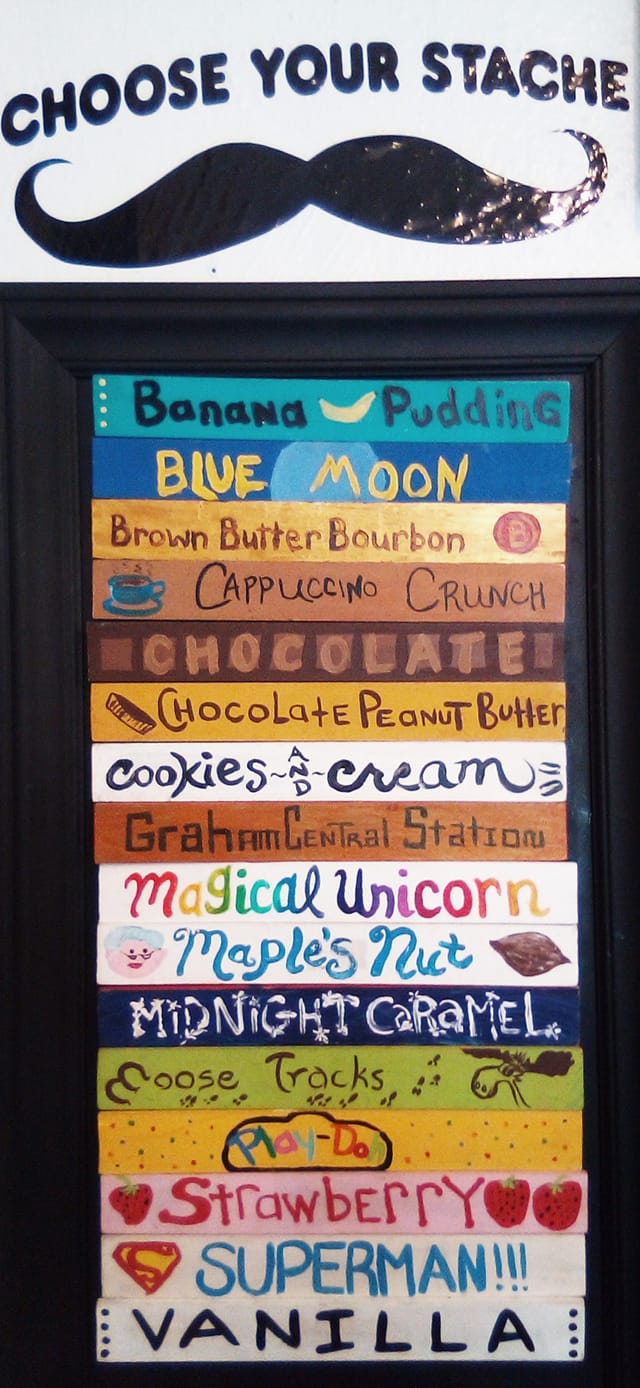 CHOOSE YOUR STACHE
Banana Pudding
BLUE MOON
Brown Butter Bourbon B
CAPPUCCINO CRUNCH
CHOCOLATE
CHOCOLatE PEANUT Butter
cookies~AND~cream
Graham CENTRal Station
Magical Unicorn
Maple's Nut
MiDNiGHT CaRaMEL
Moose Tracks
Play-Doh
StrawbERRY
S SUPERMAN!!!
VANILLA